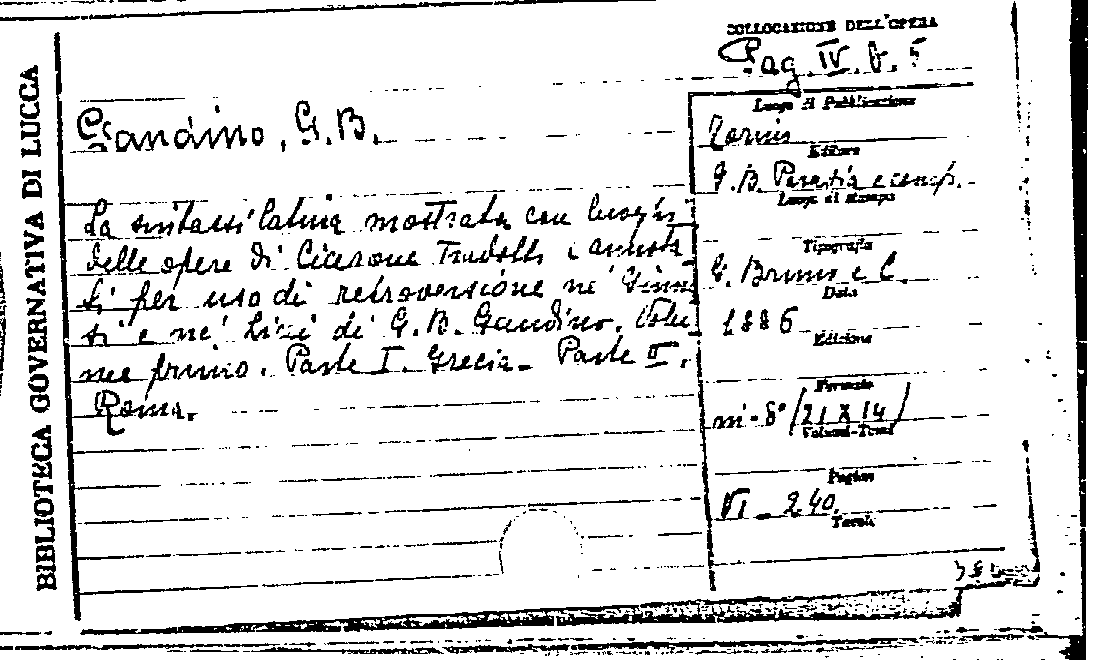 BIBLIOTECA GOVERNATIVA DI LUCCA
COLLOCAZIONE DELL'OPERA
Pag. IV. b. 5
Gandino, G. B.
La sintassi latina mostrata con luoghi
delle opere di Cicerone Tradotti e annota
ti per uso di retroversione ne' Ginna
si e ne' Licei di G. B. Gandino. Volu
me primo. Parte I. Grecia - Parte II.
Roma.
Luogo di Pubblicazione
Torino
Editore
G. B. Paravia e comp.
Luogo di Stampa
Tipografia
G. Bruno e C.
Data
1886
Edizione
Formato
in-8° (21 x 14)
Volumi-Tomi
Pagine
VI - 240
Tavole